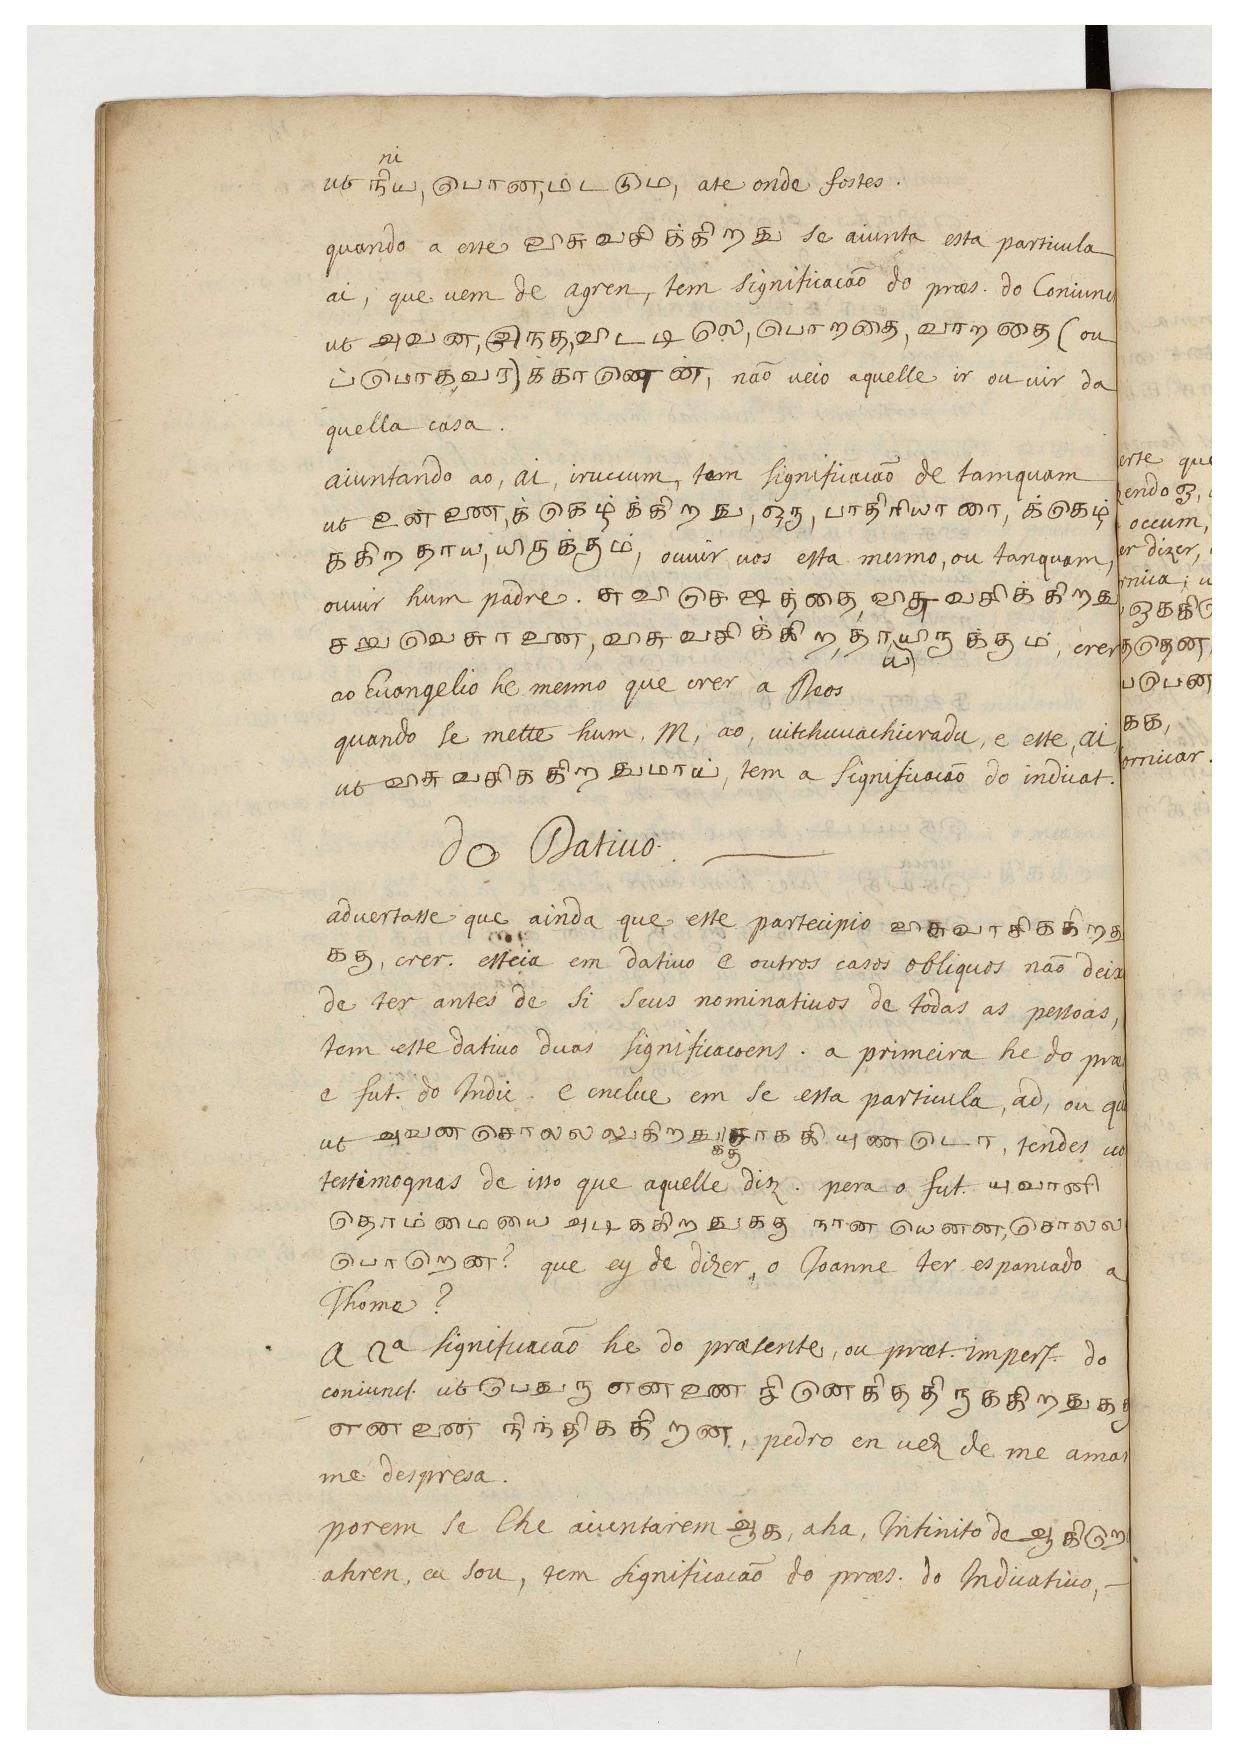 ni
ut நிய, பொன,மடடும, ate onde fostes.
quando a este விசுவசிக்கிறது se aiunta esta particula
ai, que uem de agren, tem significacaõ do præs. do Coniunc
ut அவன, அந்த, விட்டிலெ, பொறதை, வாறதை (ou
ப்பொக,வர)க்காணென், naõ ueio aquelle ir ou uir da
quella casa.
aiuntando ao, ai, iruccum, tem significacaõ de tamquam
ut உன்ணை,க் கெழ்க்கிறது, ஒரு, பாதிரியாரை, க்கெழ்
க்கிறதாய,யிருக்கும், ouuir uos esta mesmo, ou tanquam,
ouuir hum padre. சுவிசெஷத்தை, விசுவசிக்கிறது
சறுவெசுரணை, விசுவசிக்கிற,தாயிருக்கும், crer
ao Euangelio he mesmo que crer a Deos
quando se mette hum, M, ao, uitchuuachicradu, e este, ai,
ut விசுவசிககிறதுமாய், tem a significacaõ do indicat.
do Datiuo.
aduertasse que ainda que este partecipio விசுவாசிககிறது
கது, crer. esteia em datiuo e outros casos obliquos naõ deix
de ter antes de si seus nominatiuos de todas as pessoas,
tem este datiuo duas significacoens. a primeira he do præ
e fut. do Indic. e enclue em se esta particula, ad, ou qu
ut அவனசொலலுகிறது சாககியுணடொ, tendes uo
testimognas de isso que aquelle diz. pera o fut. யுவானி
தொம்மையை அடிககிறதுகது நான யெனன,சொலல
பொறென? que ey de dizer, o Joanne ter espancado a
Thome?
A 2ª significacaõ he do præsente, ou præt. imperf. do
coniunct. ut பெதுரு எனணை சினெகிததிருககிறதுகது
எனணை நிந்திககிறான, pedro en uez de me amar
me despresa.
porem se lhe aiuntarem ஆக, aha, Infinito de ஆகிறெ
ahren, eu sou, tem significacaõ do præs. do Indicatiuo,